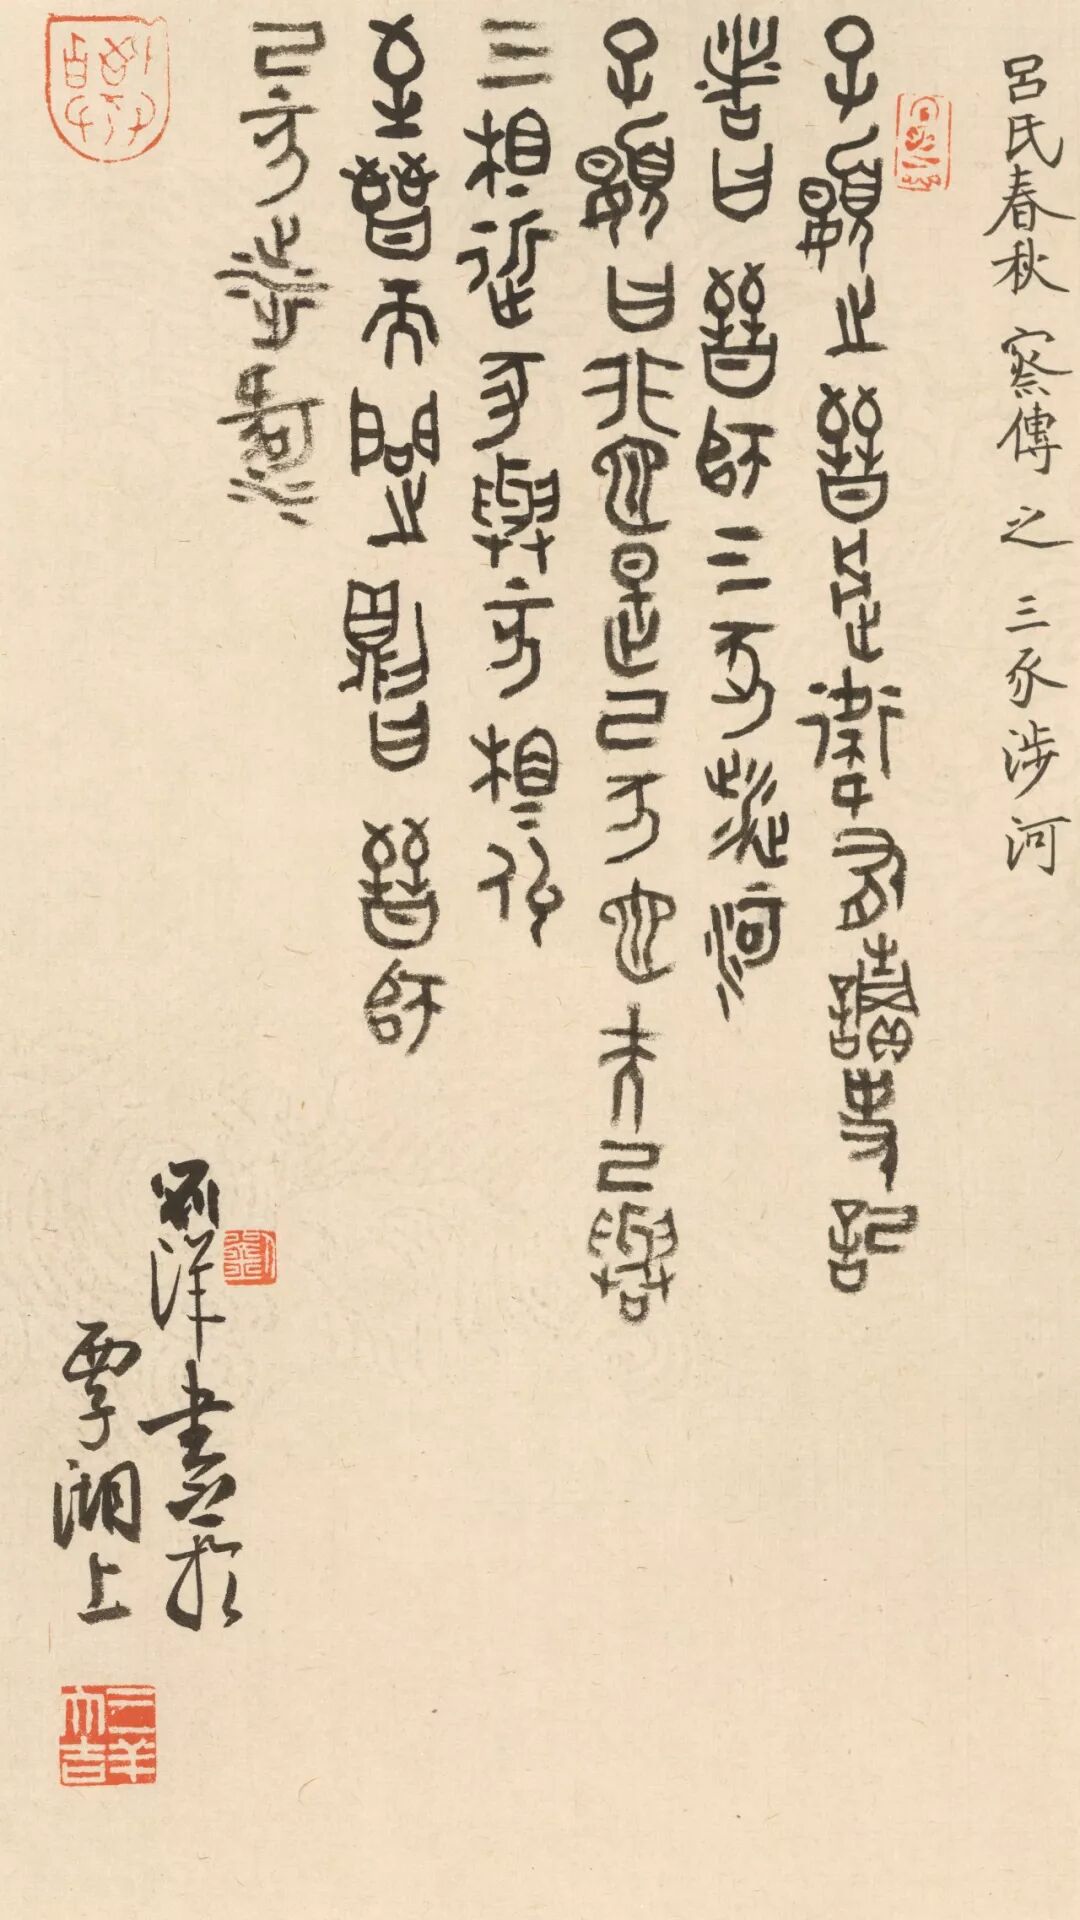 呂氏春秋 察傳 之 三豕涉河
子夏之晉過衛有讀史記
者曰晉師三豕涉河
子夏曰非也是己亥也夫己與
三相近豕與亥相似
至晉而問之則曰晉師
己亥涉河
劉洋書於
湖上
三羊大吉